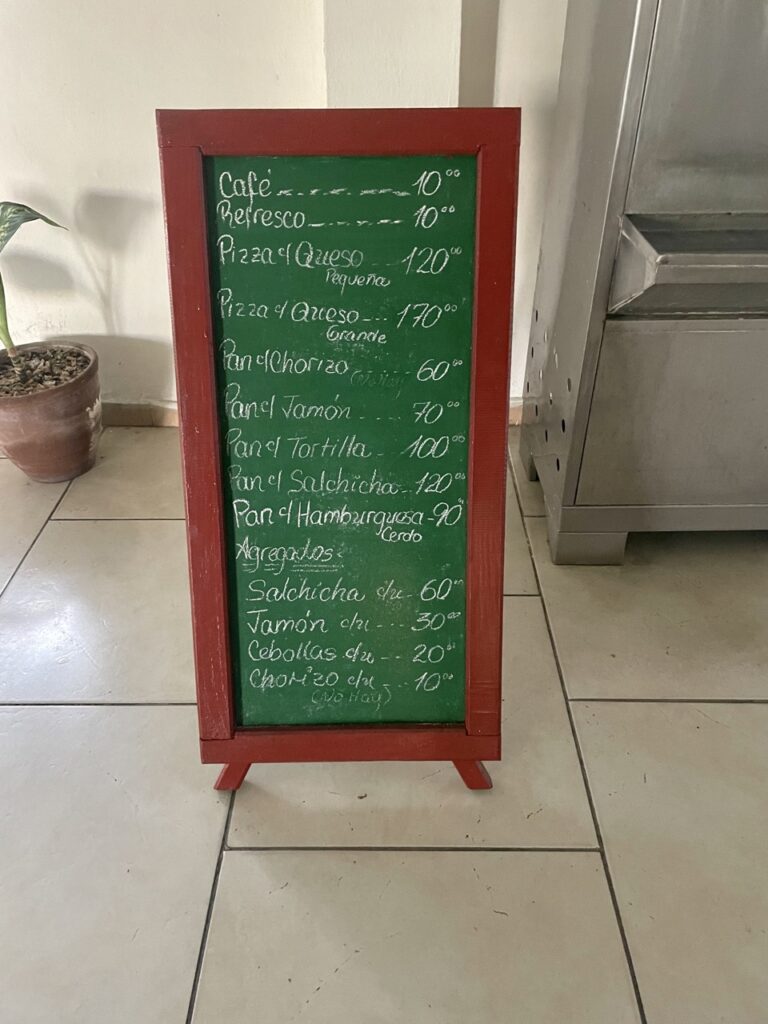 Café 10⁰⁰
Refresco 10⁰⁰
Pizza d/ Queso 120⁰⁰
Pequeña
Pizza d/ Queso --- 170⁰⁰
Grande
Pan d/ Chorizo 60⁰⁰
(No Hay)
Pan d/ Jamón ---- 70⁰⁰
Pan d/ Tortilla --- 100⁰⁰
Pan d/ Salchicha -- 120⁰⁰
Pan d/ Hamburguesa - 90⁰⁰
Cerdo
Agregados:
Salchicha c/u - 60⁰⁰
Jamón c/u --- 30⁰⁰
Cebollas c/u -- 20⁰⁰
Chorizo c/u --- 10⁰⁰
(No Hay)